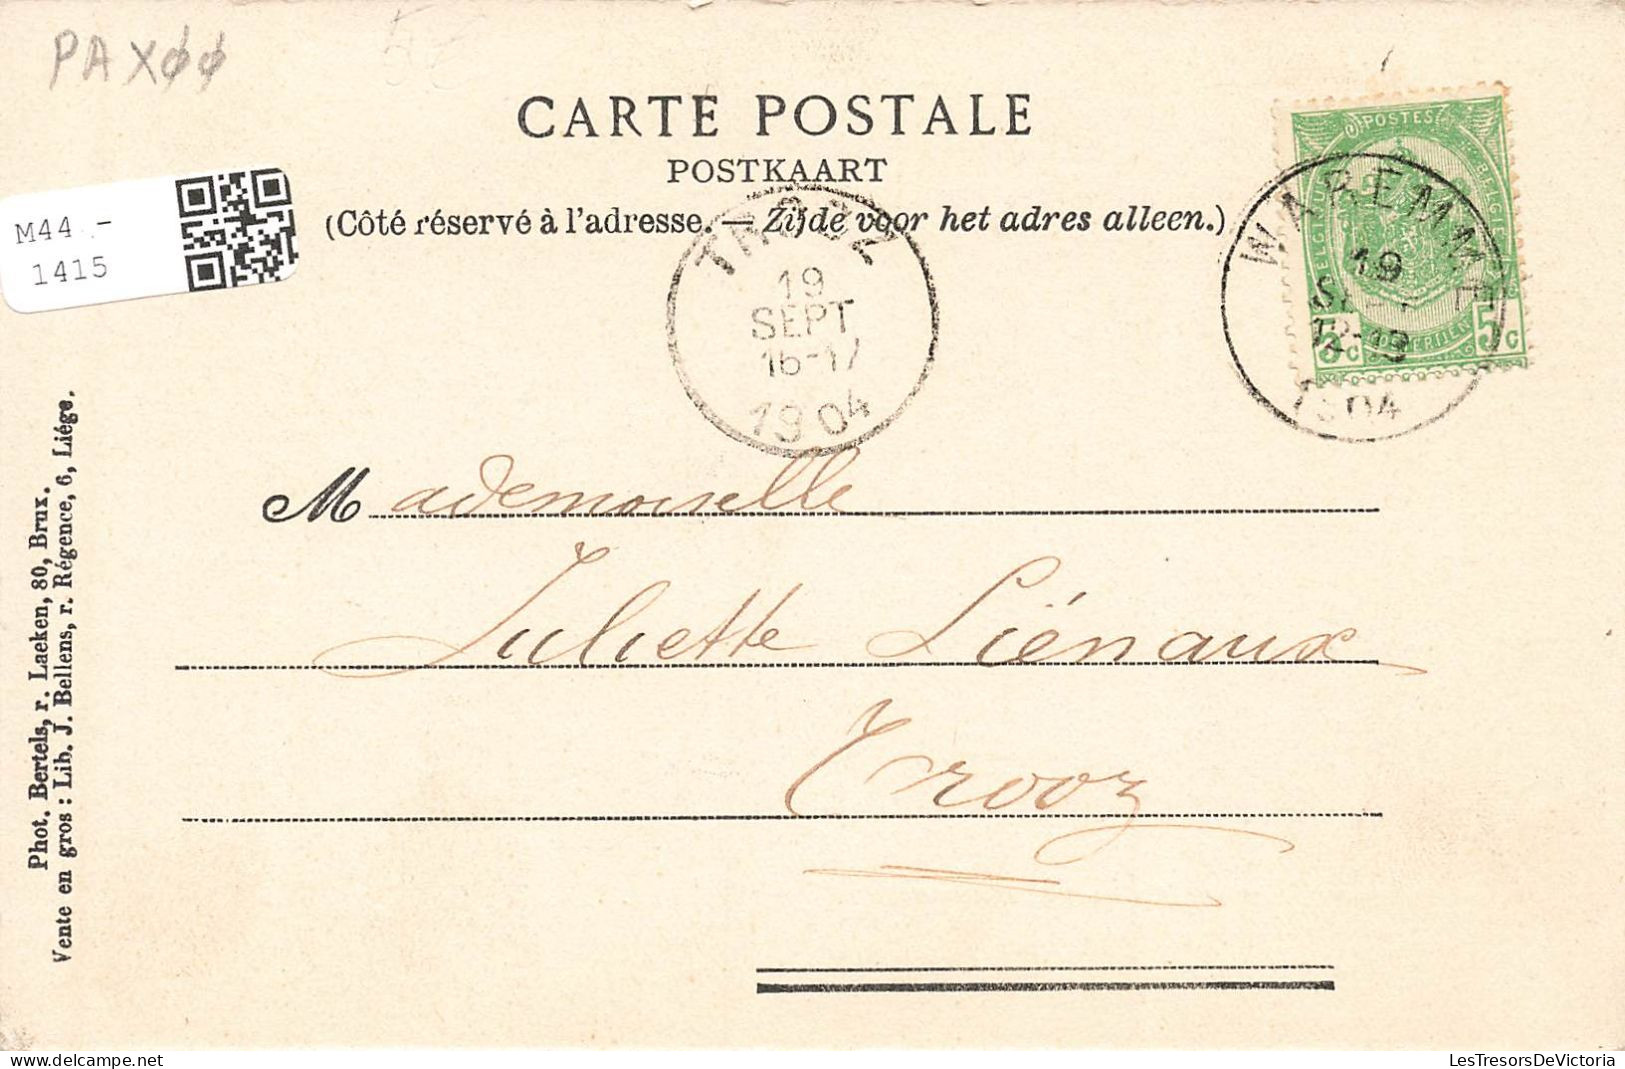 PAXØØ
CARTE POSTALE
POSTKAART
(Côté réservé à l'adresse. — Zijde voor het adres alleen.)
M44 -
1415
TROOZ
19
SEPT
16-17
1904
POSTES
5c 5c
WAREMME
19
SEPT
12-13
1904
Mademoiselle
Juliette Liénaux
Trooz
Phot. Bertels, r. Laeken, 80, Brux.
Vente en gros : Lib. J. Bellens, r. Régence, 6, Liége.
LesTresorsDeVictoria